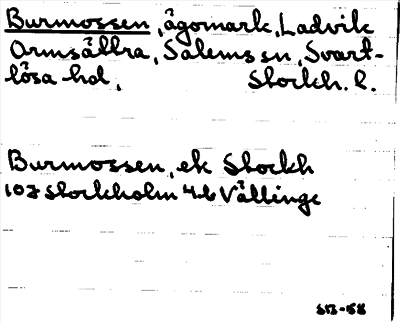 Burmossen, ägomark, Ladvik
Ormsättra, Salems sn, Svart-
lösa hd, Stockh. l.
Burmossen, ek Stockh
10J Stockholm 4b Vällinge